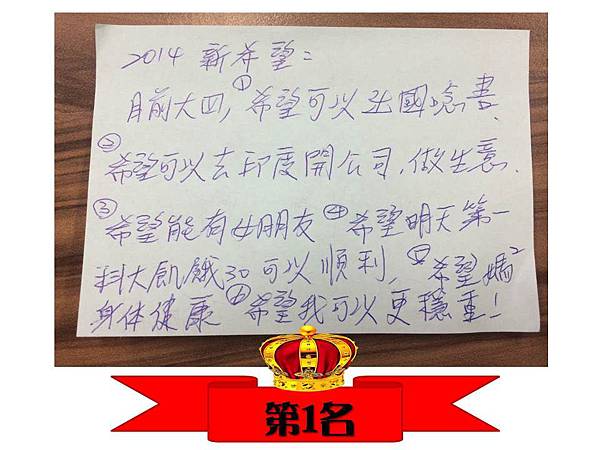 2014 新希望：
目前大四，①希望可以出國唸書、
②希望可以去印度開公司，做生意、
③希望能有女朋友 ④希望明天第一
科大飢餓30可以順利，⑤希望媽²
身体健康 ⑥希望我可以更穩重！
第1名